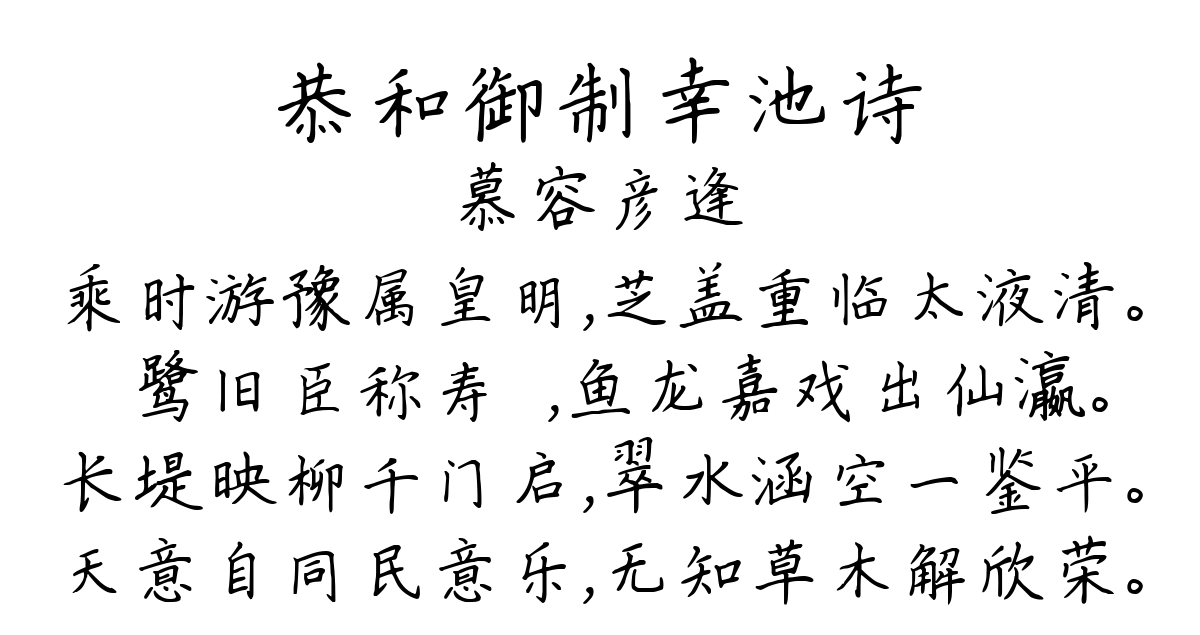 恭和御制幸池诗
慕容彦逢
乘时游豫属皇明,芝盖重临太液清。
鹭旧臣称寿 ,鱼龙嘉戏出仙瀛。
长堤映柳千门启,翠水涵空一鉴平。
天意自同民意乐,无知草木解欣荣。